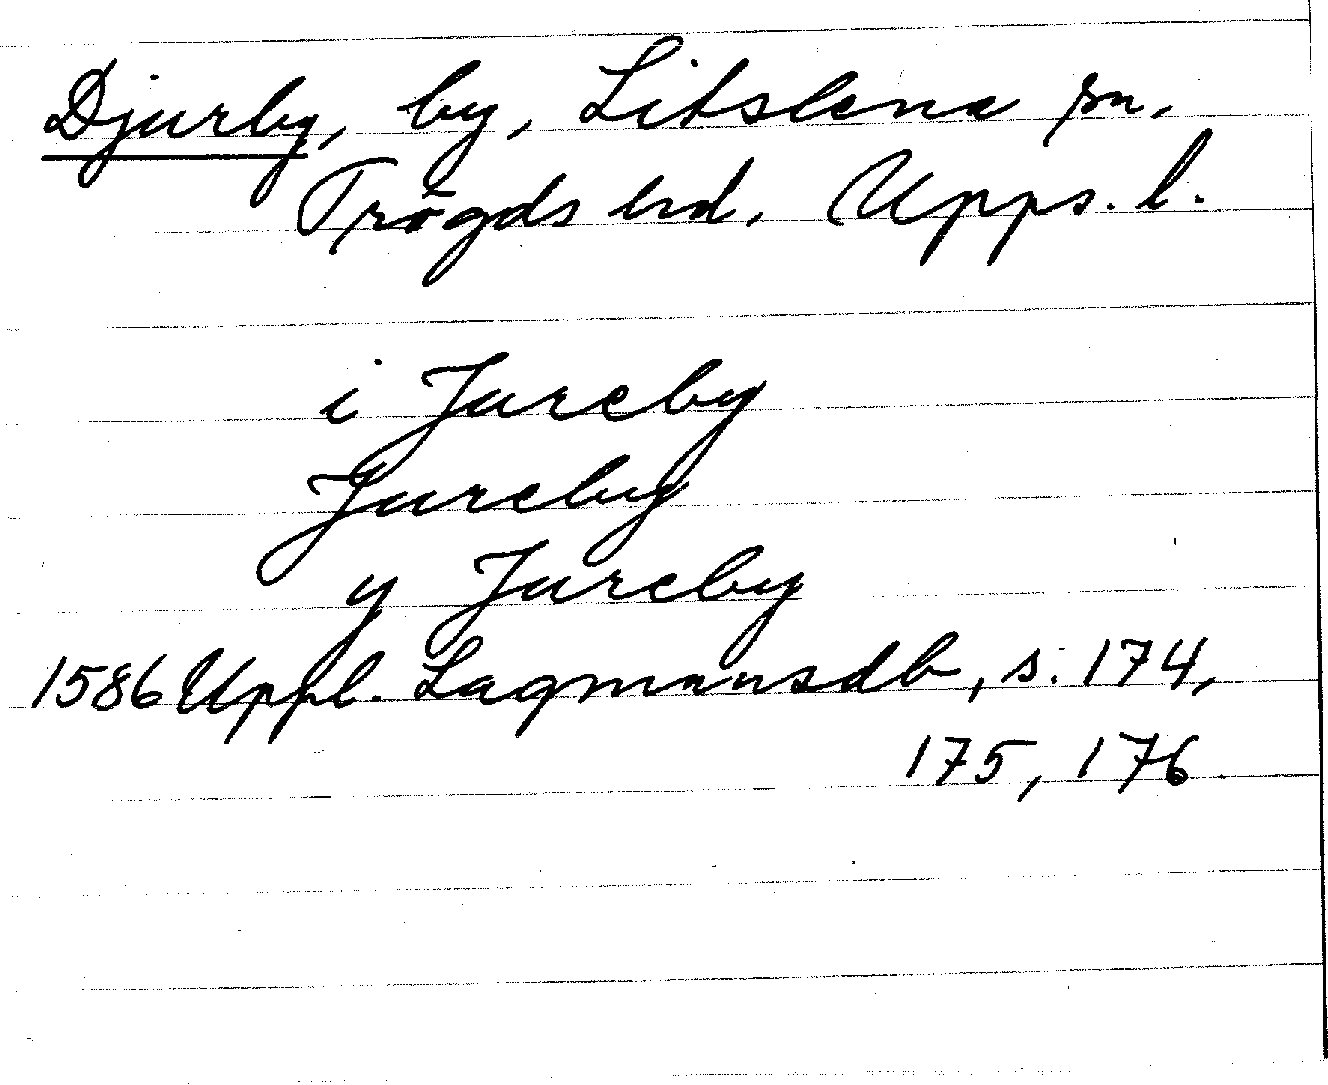 Djurby, by, Litslena sn,
Trögds hd, Upps. l.
i Jureby
Jureby
y Jureby
1586 Uppl. Lagmansdb, s. 174,
175, 176